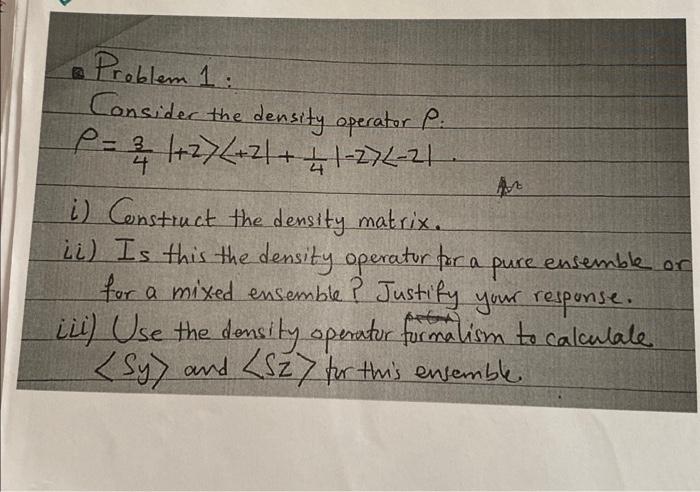 Problem 1:
Consider the density operator ρ:
ρ = 3/4 |+z><+z| + 1/4 |-z><-z|.
i) Construct the density matrix.
ii) Is this the density operator for a pure ensemble or
for a mixed ensemble? Justify your response.
iii) Use the density operator formalism to calculate
<Sy> and <Sz> for this ensemble.